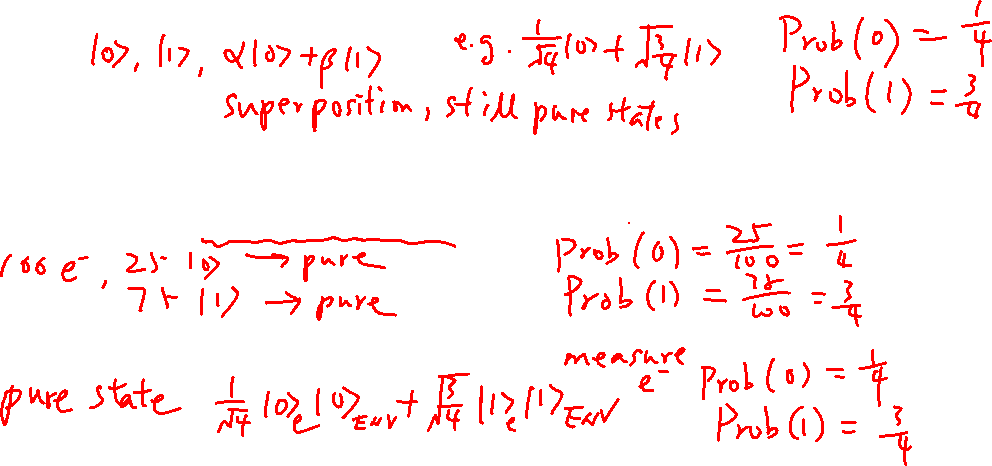 |0⟩, |1⟩, α|0⟩+β|1⟩ e.g. 1/√4|0⟩+√3/4|1⟩ Prob(0) = 1/4
superposition, still pure states Prob(1) = 3/4
100 e⁻, 25 |0⟩ → pure Prob(0) = 25/100 = 1/4
75 |1⟩ → pure Prob(1) = 75/100 = 3/4
pure state 1/√4 |0⟩e|0⟩ENV + √3/4 |1⟩e|1⟩ENV measure e⁻ Prob(0) = 1/4
Prob(1) = 3/4